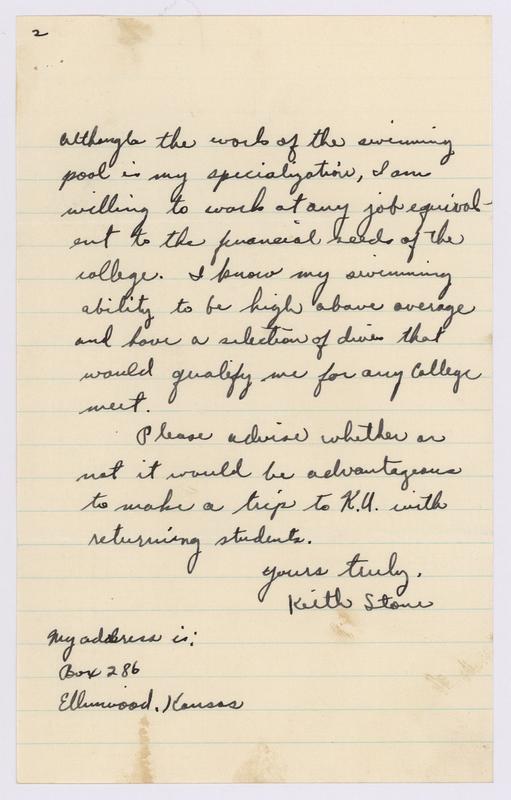 2
Although the work of the swimming
pool is my specialization, I am
willing to work at any job equival-
ent to the financial needs of the
college. I know my swimming
ability to be high above average
and have a selection of dives that
would qualify me for any College
meet.
Please advise whether or
not it would be advantageous
to make a trip to K.U. with
returning students.
Yours truly,
Keith Stone
My address is:
Box 286
Ellinwood, Kansas